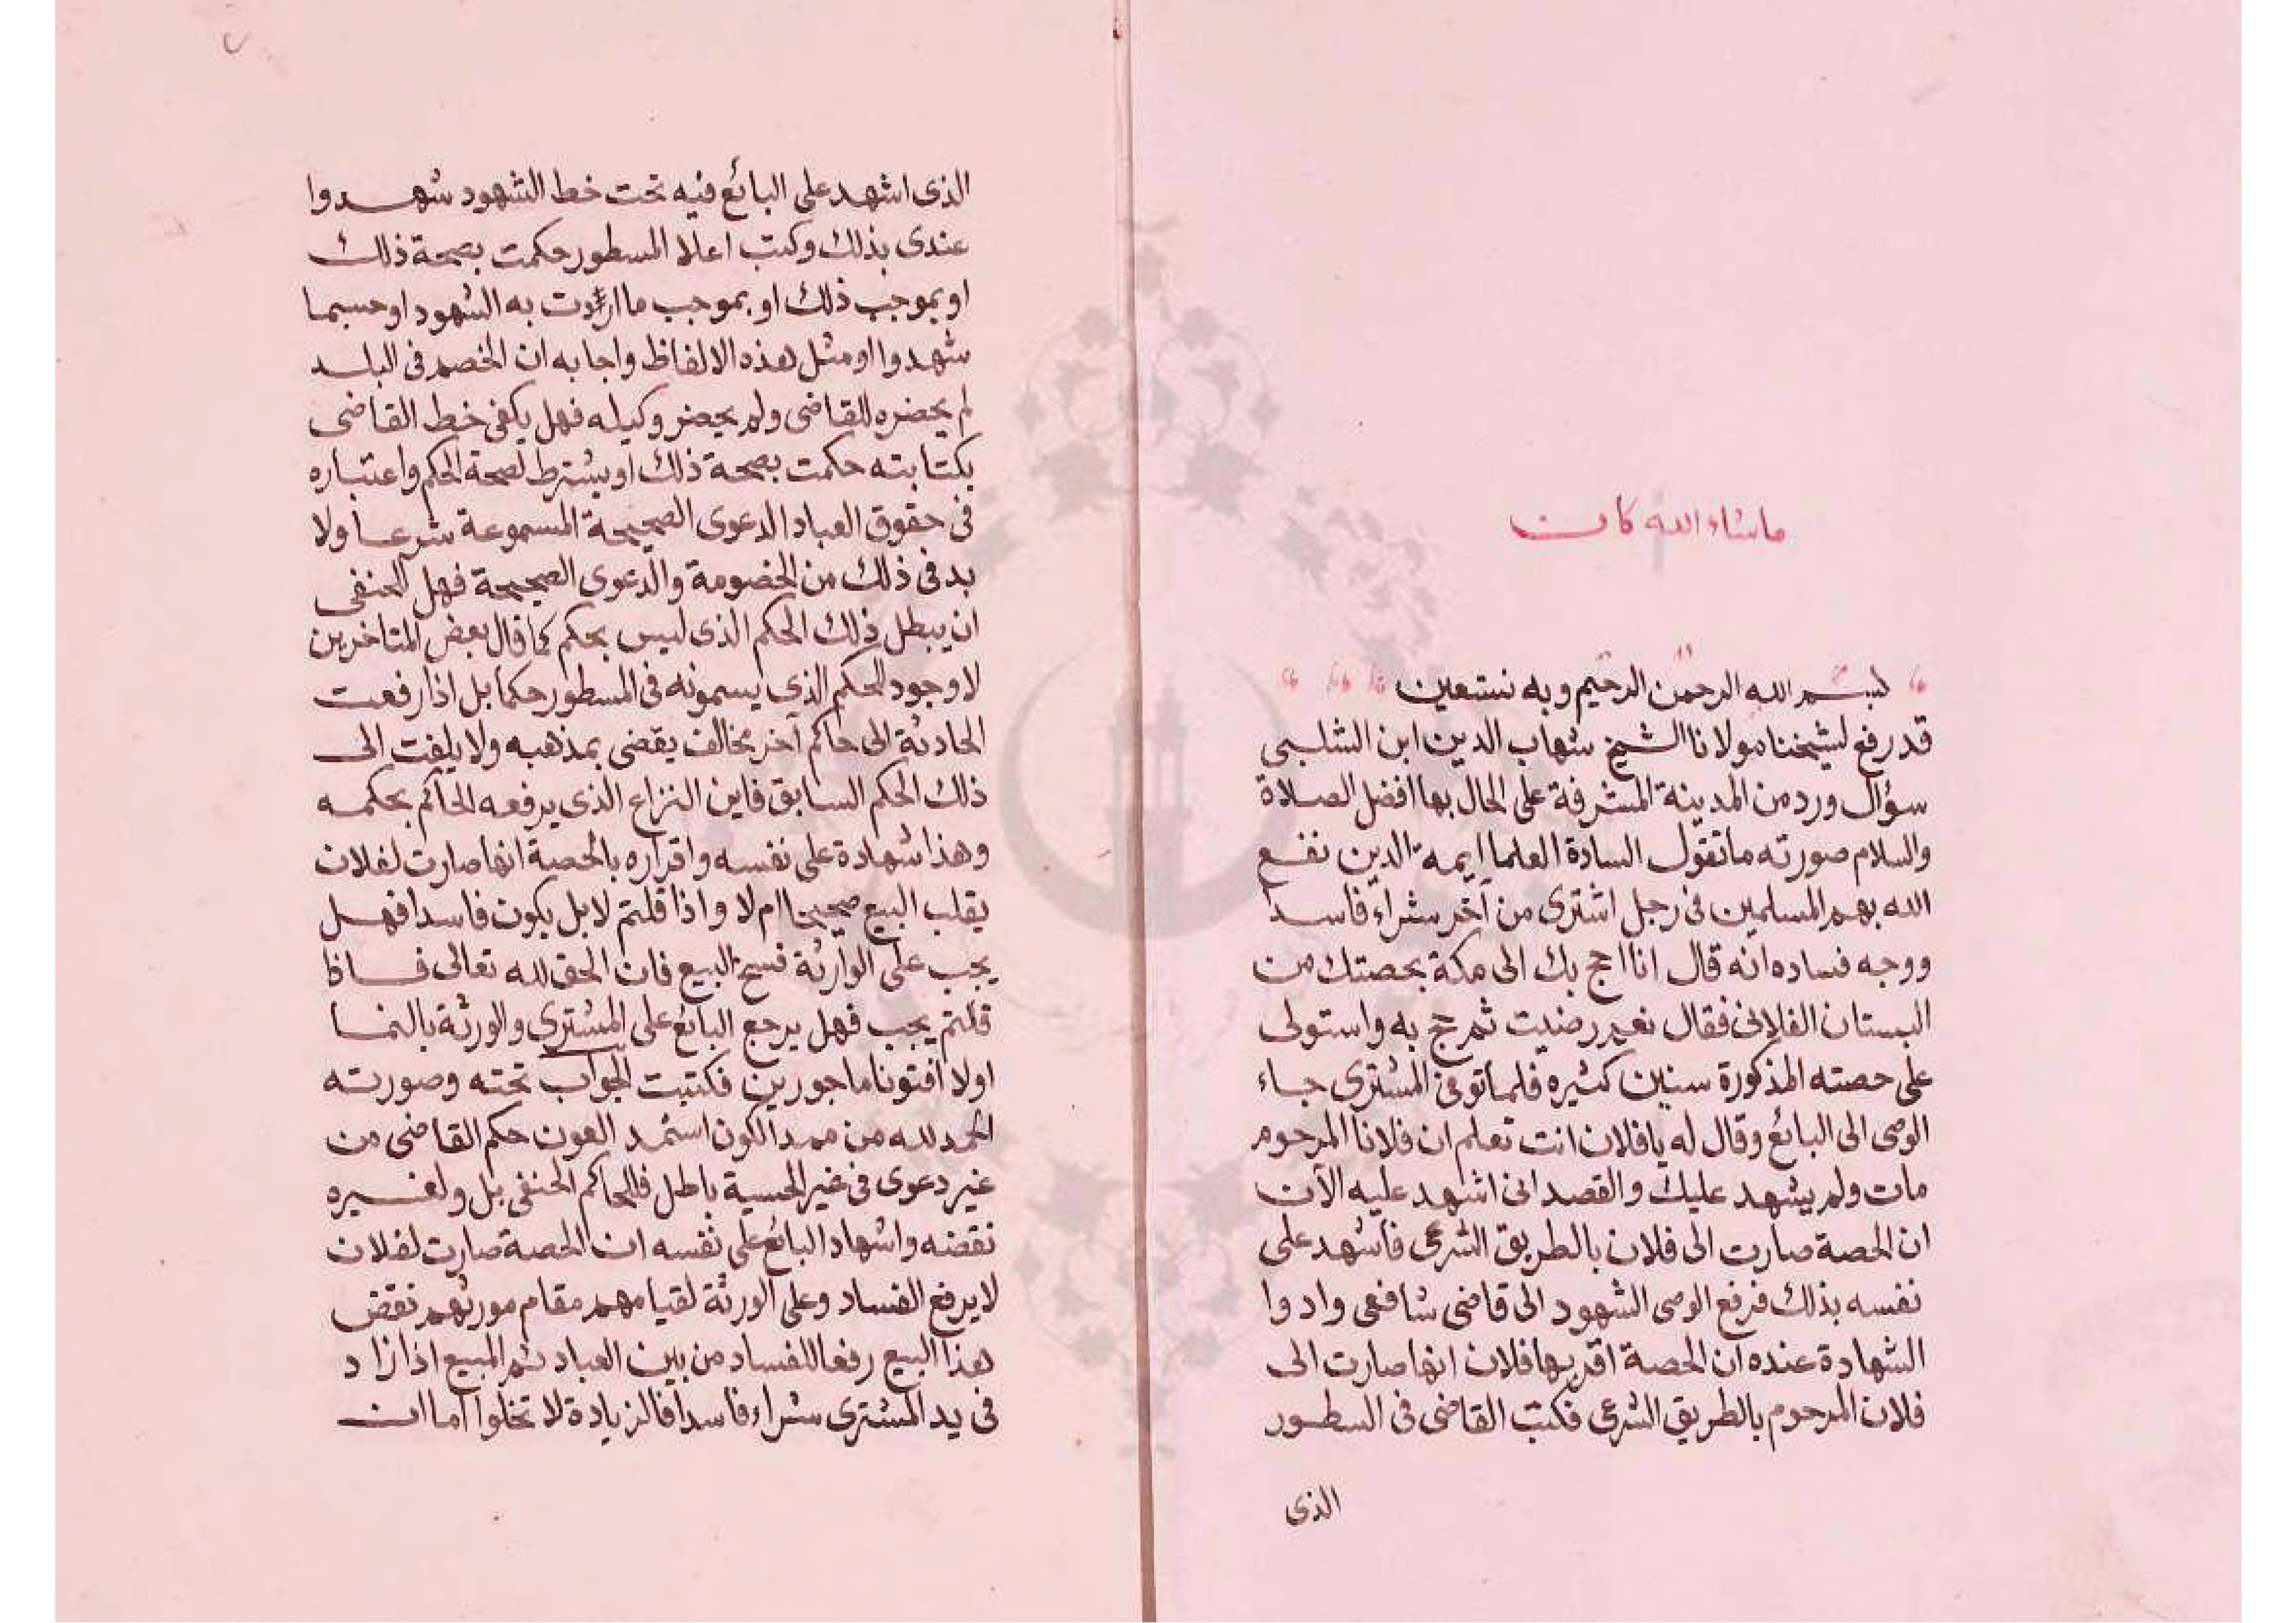 ماشاء الله كان
بسم الله الرحمن الرحيم وبه نستعين
قد رفع لشيخنا مولانا الشيخ شهاب الدين ابن الشلبي
سؤال ورد من المدينة المشرفة على الحال بها افضل الصلاة
والسلام صورته ما تقول السادة العلما ايمه الدين نفع
الله بهم المسلمين في رجل اشترى من آخر شراء فاسدا
ووجه فساده انه قال انا احج بك الى مكة بحصتك من
البستان الفلاني فقال نعم رضيت ثم حج به واستولى
على حصته المذكورة سنين كثيره فلما توفى المشترى جاء
الوصى الى البائع وقال له يا فلان انت تعلم ان فلانا المرحوم
مات ولم يشهد عليك والقصد انى اشهد عليه الآن
ان الحصة صارت الى فلان بالطريق الشرعى فأشهد على
نفسه بذلك فرفع الوصى الشهود الى قاضى شافعى وادوا
الشهادة عنده ان الحصة اقر بها فلان انها صارت الى
فلان المرحوم بالطريق الشرعى فكتب القاضى فى السطور
الذى
الذى اشهد على البائع فيه تحت خط الشهود شهدوا
عندى بذلك وكتب اعلا المسطور حكمت بصحة ذلك
او بموجب ذلك او بموجب ما ادت به الشهود او حسبما
شهدوا او مثل هذه الالفاظ واجابه ان الخصم فى البلد
لم يحضره للقاضى ولم يحضر وكيله فهل يكفى خط القاضى
بكتابته حكمت بصحة ذلك او يشترط لصحة الحكم واعتباره
فى حقوق العباد الدعوى الصحيحة المسموعة شرعا ولا
بد فى ذلك من الخصومة والدعوى الصحيحة فهل للحنفى
ان يبطل ذلك الحكم الذى ليس بحكم كما قال بعض المتاخرين
لا وجود للحكم الذى يسمونه فى المسطور حكما بل اذا رفعت
الحادثة الى حاكم آخر مخالف يقضى بمذهبه ولا يلفت الى
ذلك الحكم السابق فاين النزاع الذى يرفعه الحاكم بحكمه
وهذا شهادة على نفسه واقراره بالحصة انها صارت لفلان
يقلب البيع صحيحا ام لا واذا قلتم لا بل يكون فاسدا فهل
يجب على الوارثة فسخ البيع فان الحق لله تعالى فاذا
قلتم يجب فهل يرجع البائع على المشترى والورثة بالنما
اولا افتونا ماجورين فكتبت الجواب تحته وصورته
الحمد لله من ممد الكون استمد العون حكم القاضى من
غير دعوى فى غير الحسبة باطل فللحاكم الحنفى بل ولغيره
نقضه واشهاد البائع على نفسه ان الحصة صارت لفلان
لا يرفع الفساد وعلى الورثة لقيامهم مقام مورثهم نقض
هذا البيع رفعا للفساد من بين العباد ثم المبيع اذا زاد
فى يد المشترى شراء فاسدا فالزيادة لا تخلوا اما ان